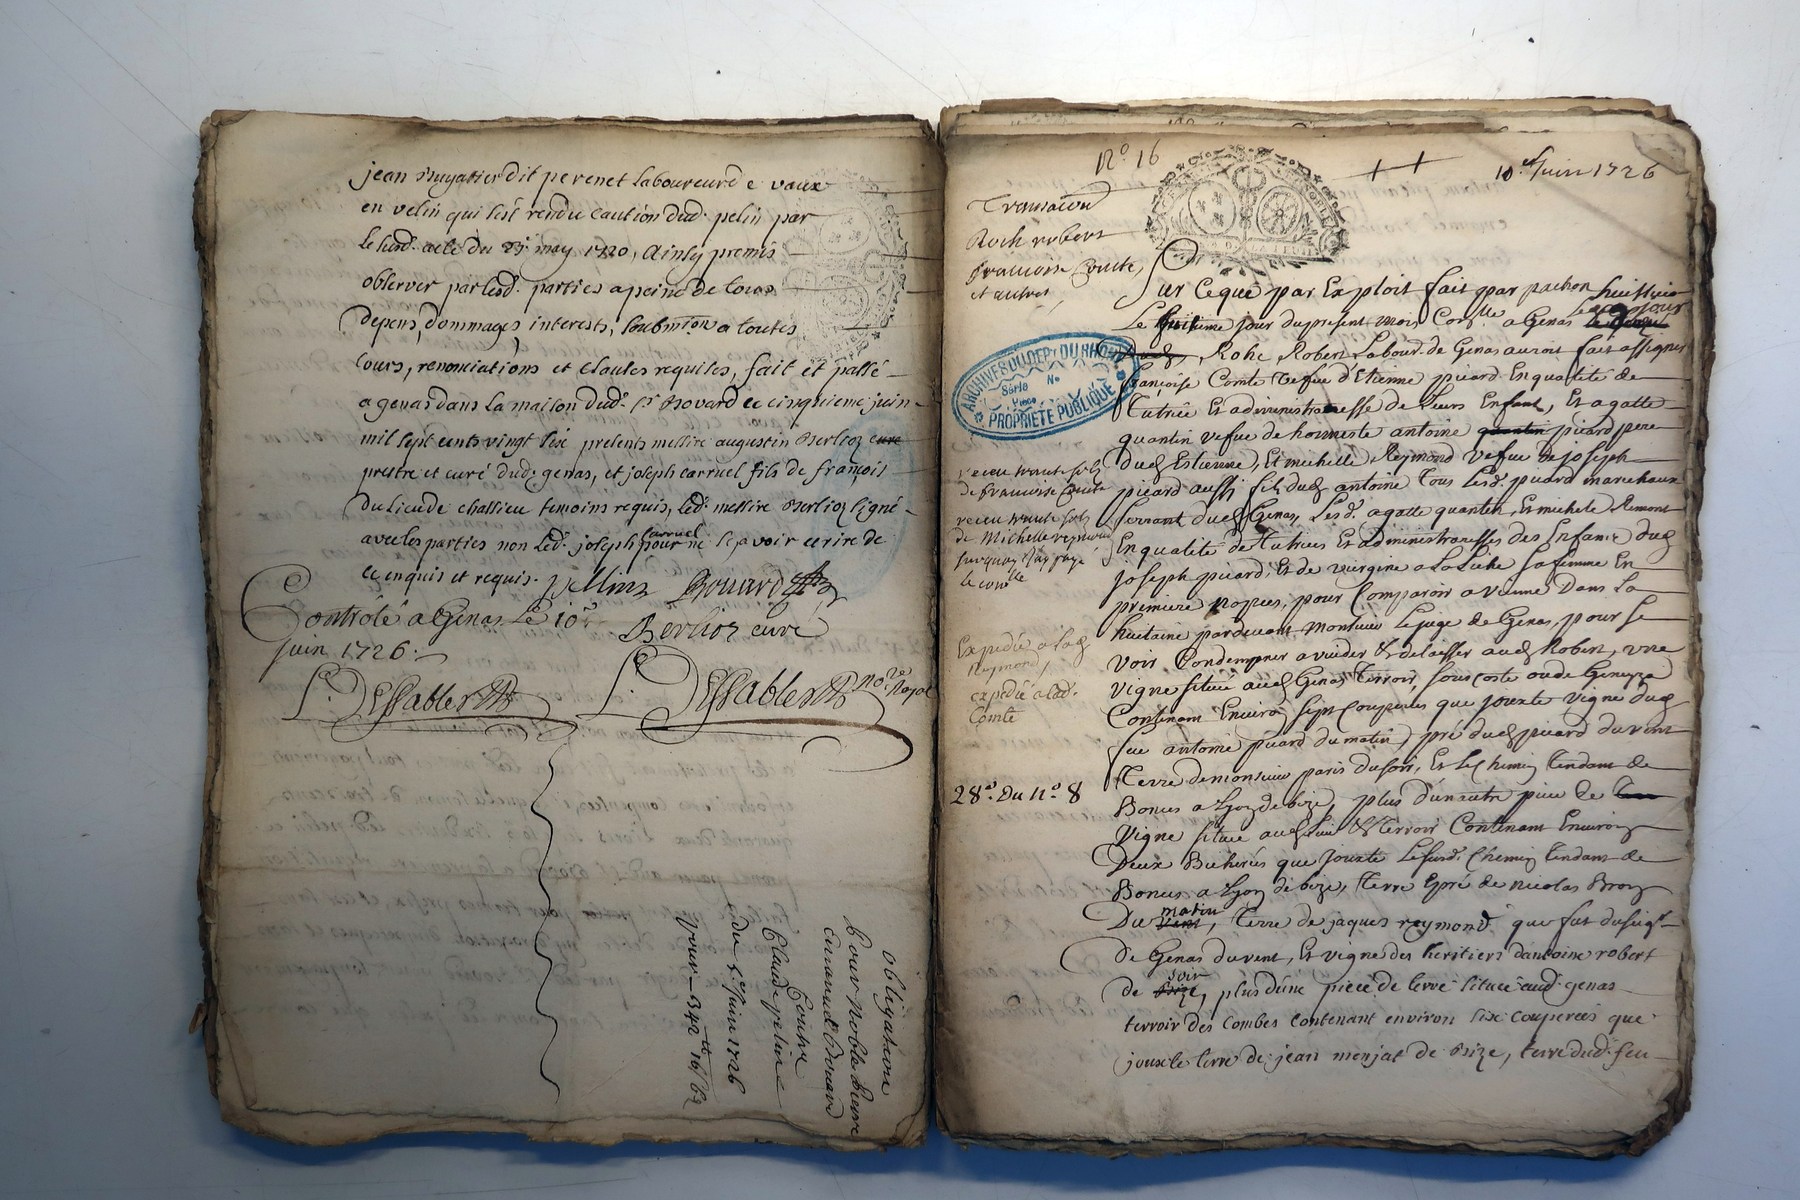 jean muyatier dit perenet laboureur de vaux
en velin qui s'est rendu caution dud. pelin par
le susd. acte du 23e. may 1720, ainsy promis
observer par lesd. parties a peine de tous
depens, dommages, interests, soubmton a toutes
cours, renonciations et clauses requises, fait et passé
a genas dans la maison dud. sr. Bovard ce cinquieme juin
mil sept cents vingt six presents messire augustin Berlioz cure
prestre et curé dud. genas, et joseph carruel fils de françois
du lieu de chassieu temoins requis, led. messire Berlioz signé
avec les parties non led. joseph carruel pour ne sçavoir ecrire de
ce enquis et requis.
Bouard
Berlioz curé
Controlé a Genas le 10e
juin 1726.
Dessables
Dessables nore. Royal
obligation
pour noble pierre
Bouard
Contre
Claude peline
du 5e juin 1726
No. 16
10e. Juin 1726
Transaction
Roch robert
francoise Comte,
et autres
Sur ce que par Exploit fait par pachon huissier
Le huitieme jour du present mois Conlle a Genas le mesme jour
Rohc Robert Labour. de Genas auroit fait assigner
françoise Comte vefue d'Etienne picard En qualité de
Tutrice Et administraresse de leurs Enfant, Et agatte
quantin vefue de honneste antoine quantin picard pere
dud. Estienne, Et michelle Reymond vefue de joseph
picard aussi fils dud. antoine Tous lesd. picard marechaux
ferrant dud. Genas, Lesd. agatte quantin, Et michele Remont
En qualité de Tutrices Et administraresses des Enfants dud.
joseph picard, Et de virgine a la Liche sa femme En
premiere nopces, pour Comparoir a vienne Dans La
huitaine pardevant monsieur Le juge de Genas, pour se
voir Condempner a vuider & delaisser aud. Robert, une
vigne située aud. Genas Terroir, sous coste ou de Geneyze
Contenant Environ sept Couperées que jouxte vigne dud.
feu antoine picard du matin, pré dud. picard du vent
Terre de monsieur paris du soir, Et le Chemin Tendant de
Bonces a Lyon de bize, plus d'un autre piece de
Vigne située aud. Lieu & Terroir Contenant Environ
Deux Bicherées que jouxte Le susd. Chemin Tendant de
Bonces a Lyon de bize, Terre & pré de nicolas Broz
Du vent matin, Terre de jaques reymond que fut du seigr.
de Genas du vent, Et vigne des heritiers d'antoine robert
de Bize soir, plus d'une piece de terre situee aud. genas
terroir des Combes contenant environ six couperées que
jouxte terre de jean monjat de Bize, terre dud. feu
ARCHIVES DU DEPt DU RHONE
Série No
Piece
PROPRIÉTÉ PUBLIQUE
receu trante sols
de francoise Comte
receu trante sols
de Michelle reymond
sur quoy j'ay payé
le conlle
Expedié a lad.
Reymond
expedié a lad.
Comte
28e. Du No. 8